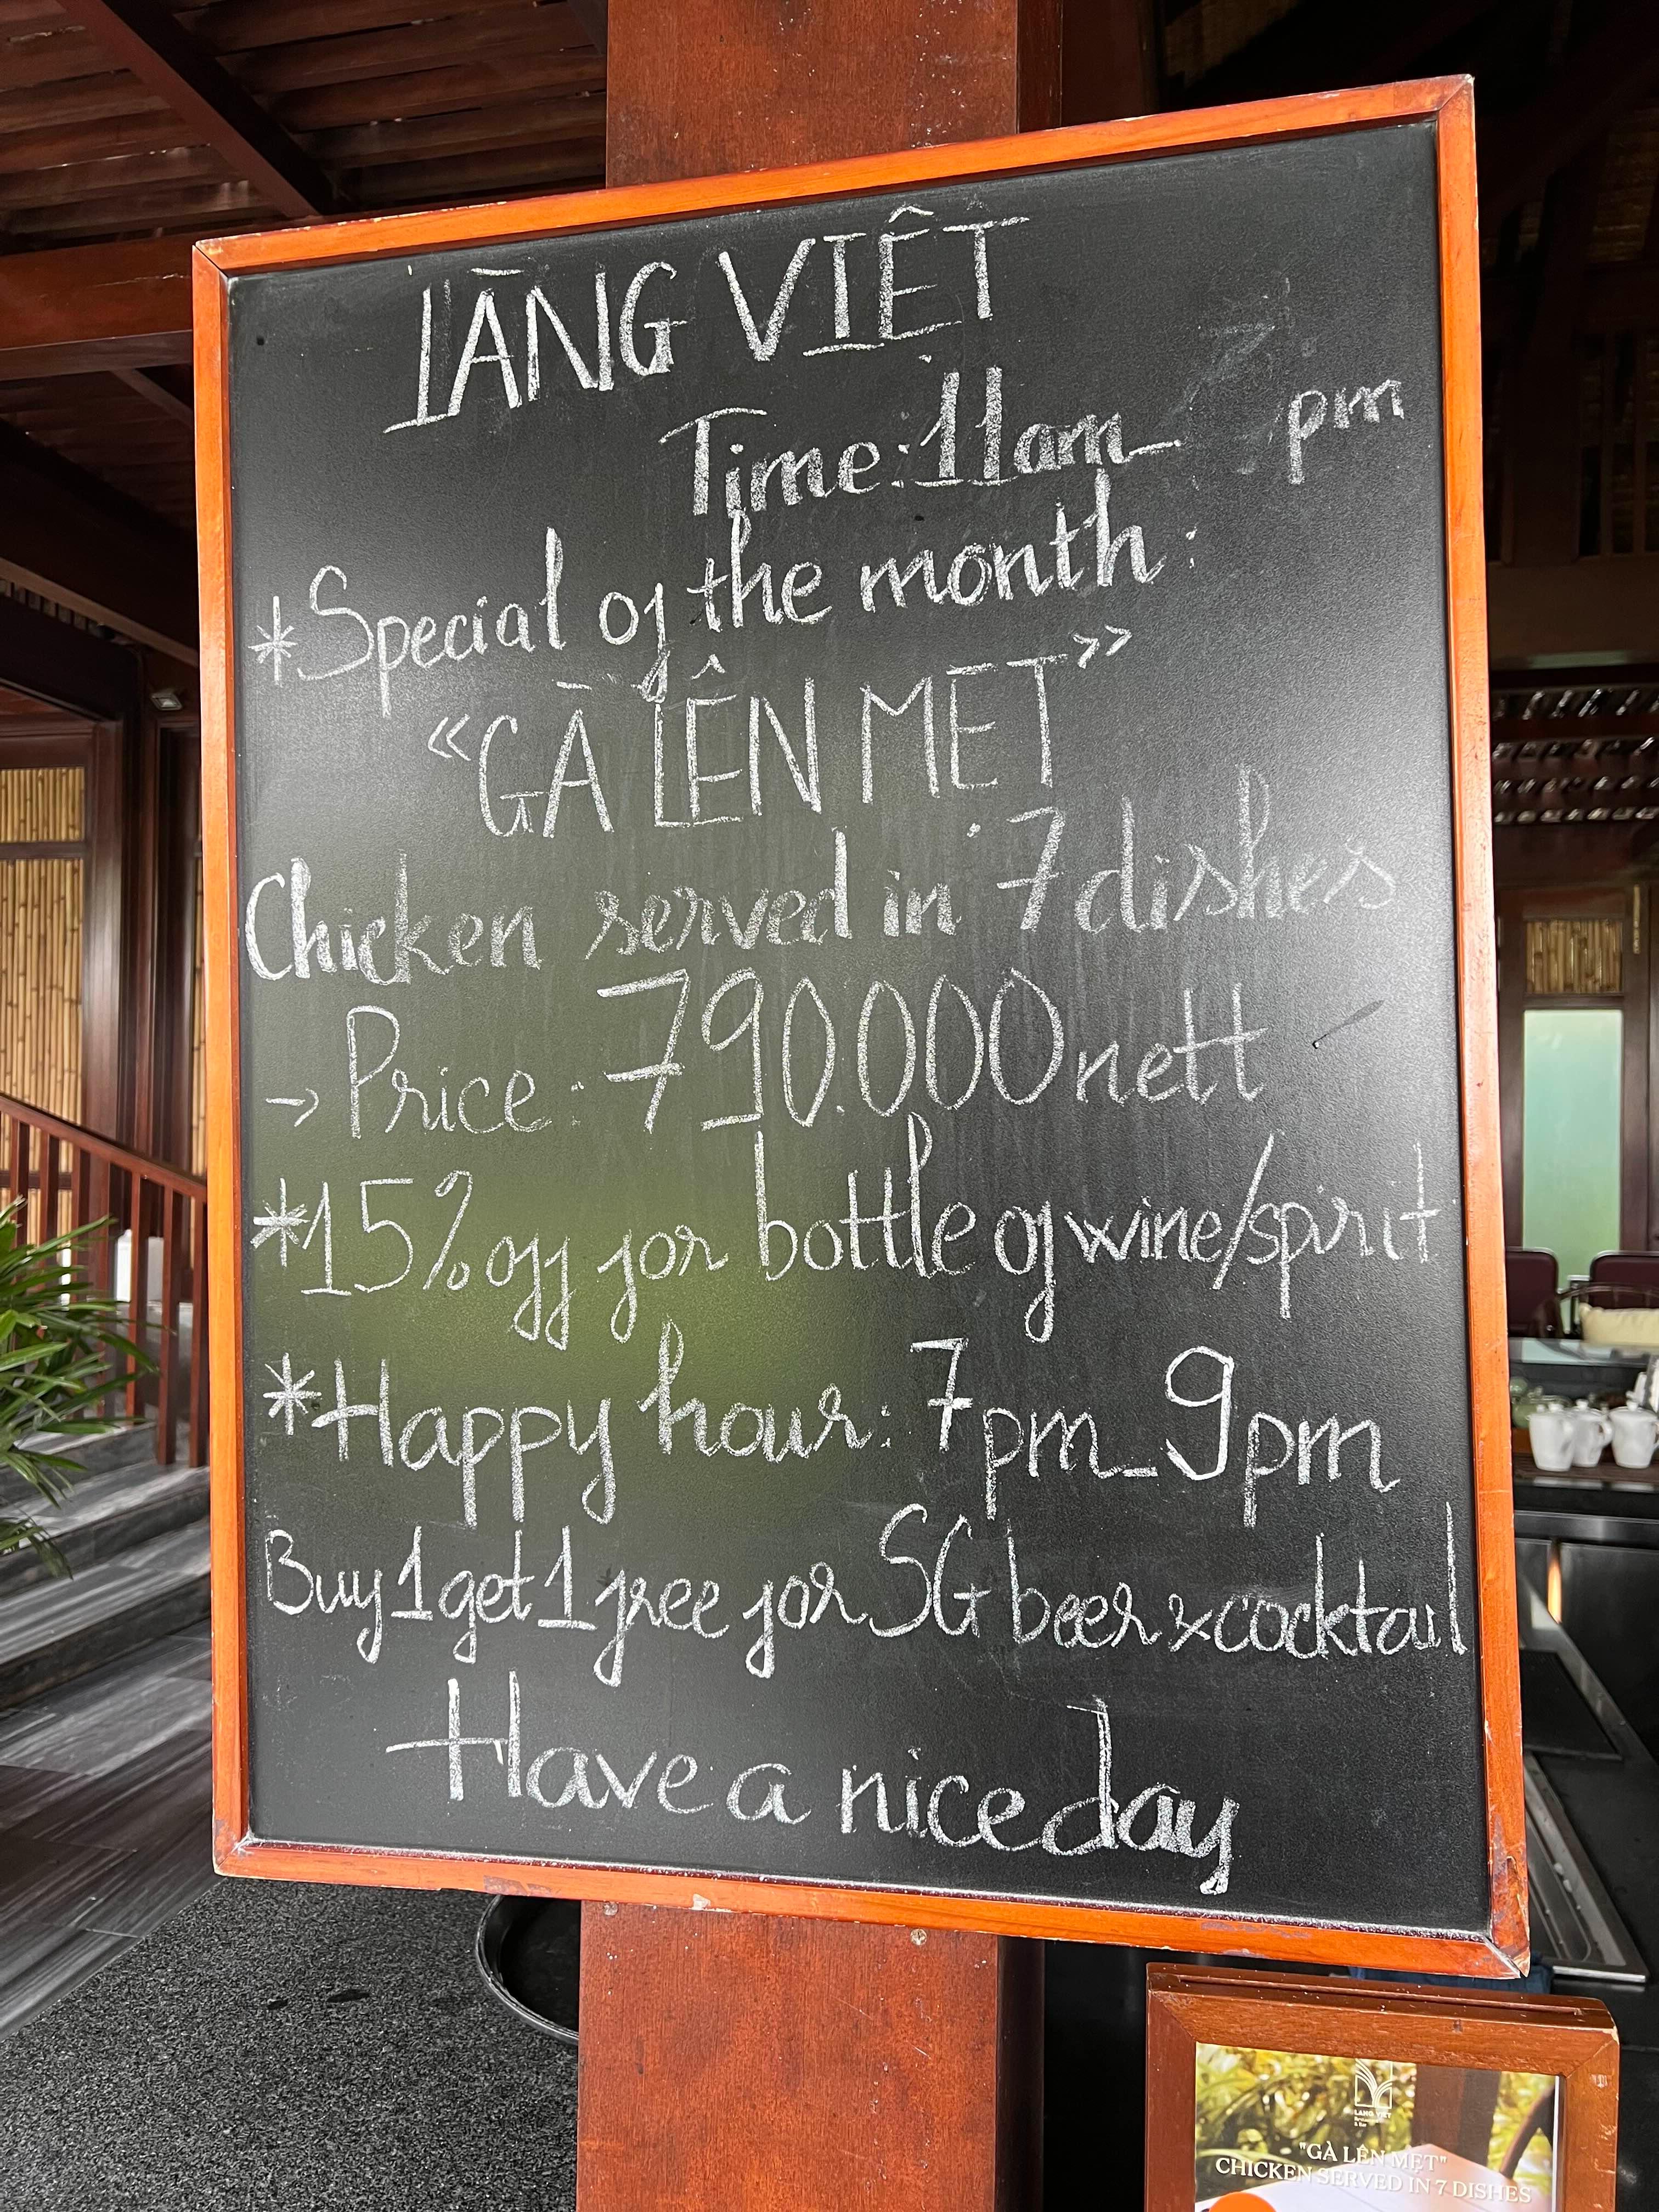 LÀNG VIỆT
Time: 11am_ pm
*Special of the month:
"GÀ LÊN MẸT"
Chicken served in 7 dishes
-> Price: 790.000 nett
*15% off for bottle of wine/spirit
*Happy hour: 7pm_9pm
Buy 1 get 1 free for SG beer & cocktail
Have a nice day
LANG VIET
"GÀ LÊN MẸT"
CHICKEN SERVED IN 7 DISHES